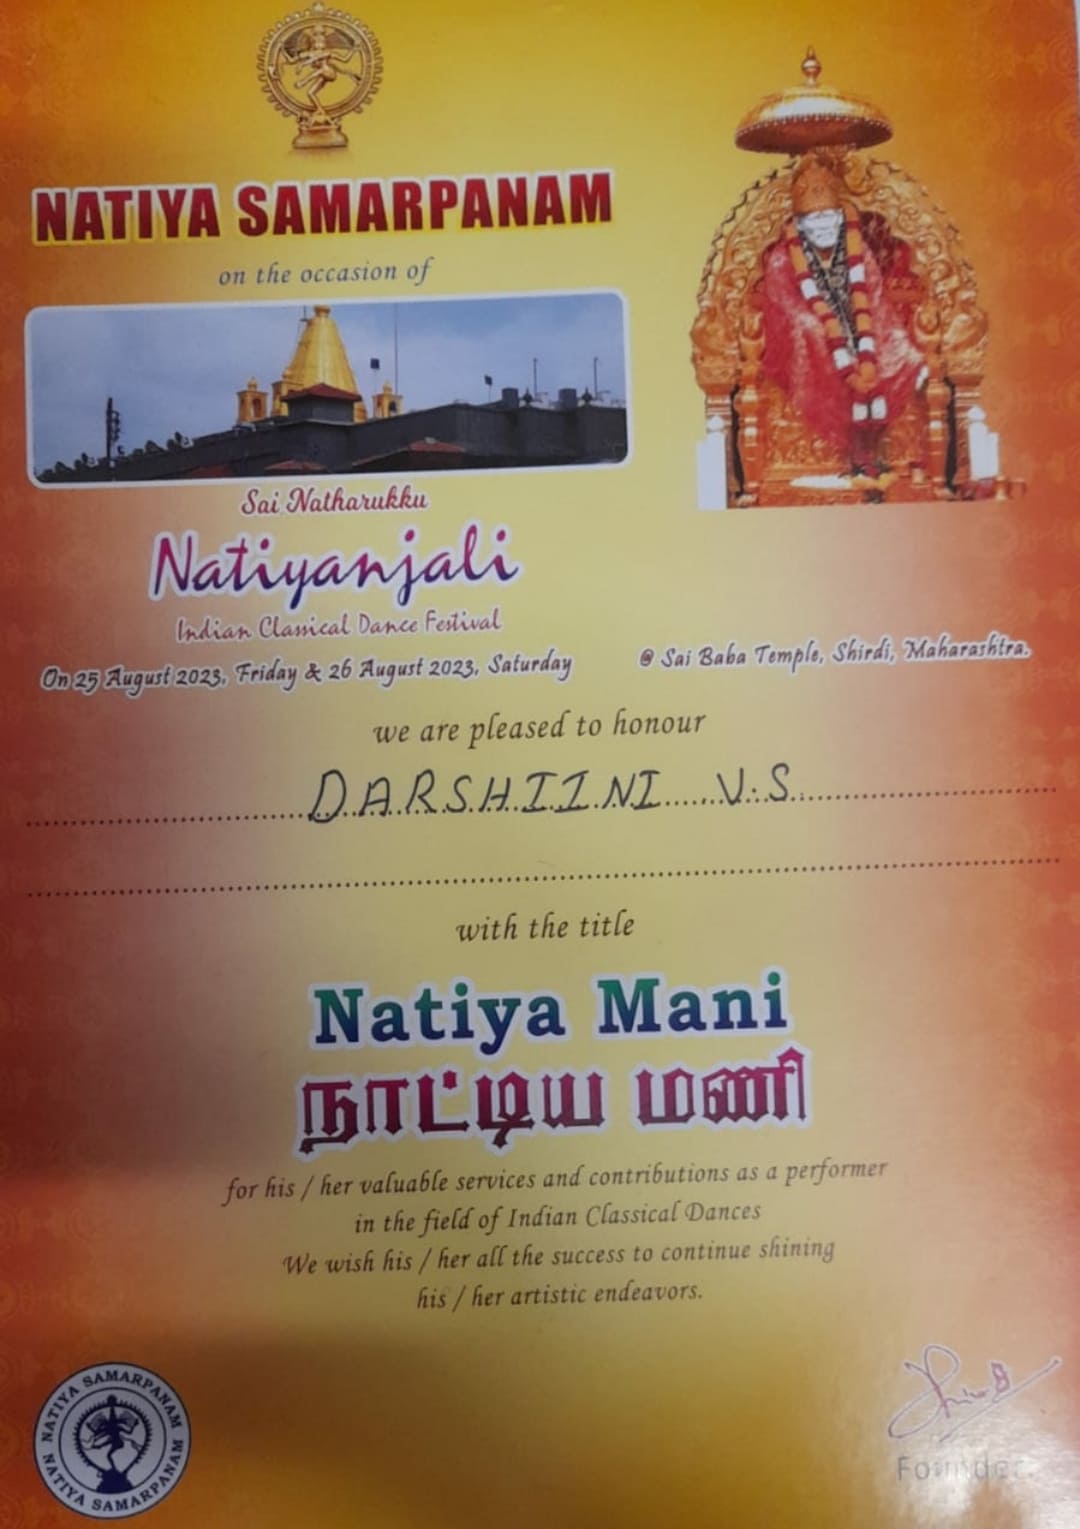 NATIYA SAMARPANAM
on the occasion of
Sai Natharukku
Natiyanjali
Indian Classical Dance Festival
On 25 August 2023, Friday & 26 August 2023, Saturday
@ Sai Baba Temple, Shirdi, Maharashtra.
we are pleased to honour
DARSHIINI V.S.
with the title
Natiya Mani
நாட்டிய மணி
for his / her valuable services and contributions as a performer
in the field of Indian Classical Dances
We wish his / her all the success to continue shining
his / her artistic endeavors.
NATIYA SAMARPANAM
NATIYA SAMARPANAM
Founder.